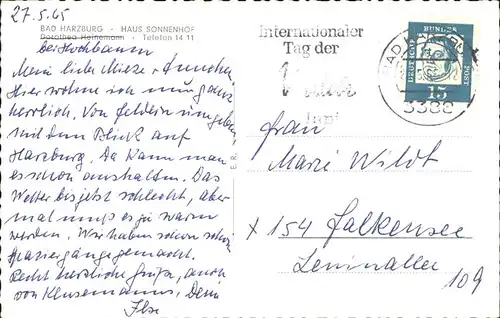 27.5.65
BAD HARZBURG - HAUS SONNENHOF
Dorothea Heinemann • Telefon 14 11
Meine liebe Mieze +
Hier wohne ich nun ganz
herrlich. Von Feldern umgeben
mit dem Blick auf
Harzburg. Da kann man
es schon aushalten. Das
Wetter bis jetzt schlecht, aber
mal muß es ja warm
werden. Wir haben schon schöne
Spaziergänge gemacht.
Recht herzliche Grüße, auch
von Klusemanns, Deine
Ilse
E.R.
Internationaler
Tag der
Milch
1. Juni
BAD
3388
DEUTSCHE BUNDESPOST
15
Frau
Marie Wildt
X 154 Falkensee
Leninallee
109